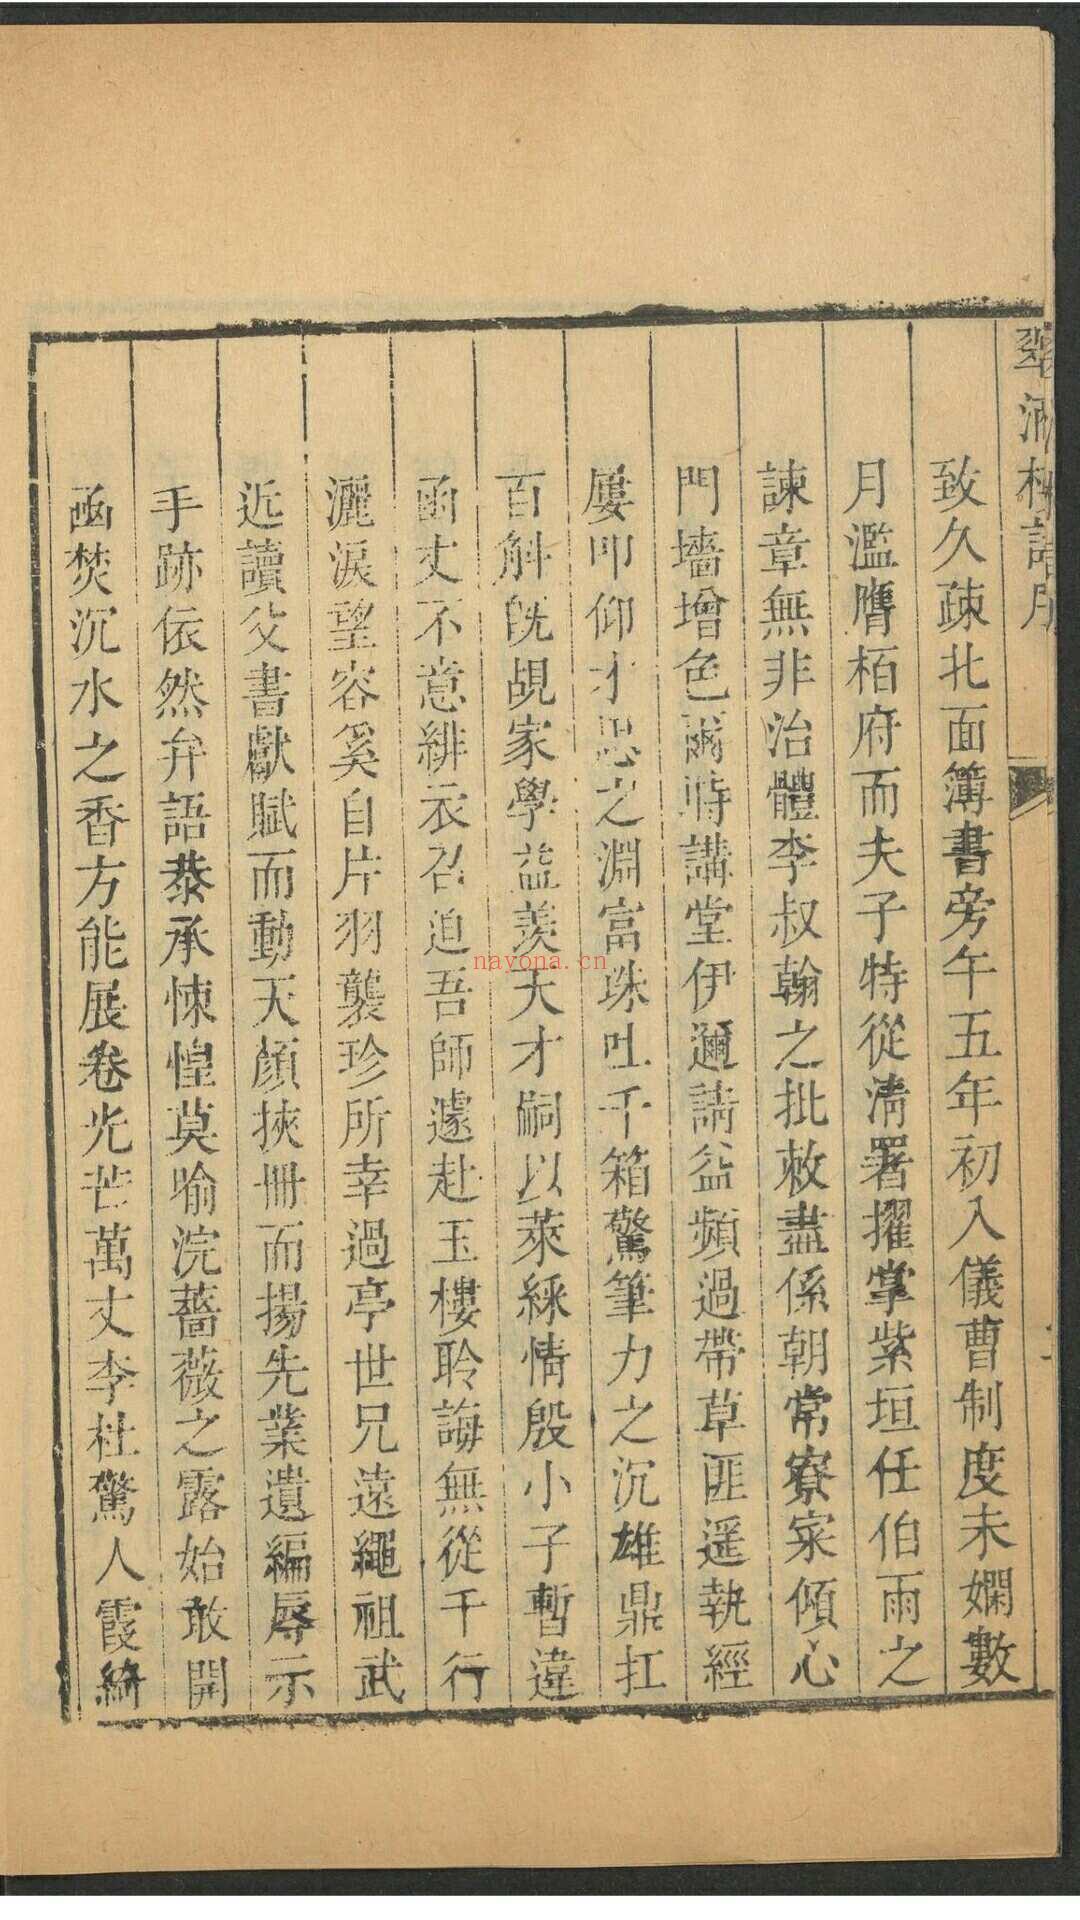 致久疎北面簿書旁午五年初入儀曹制度未嫻數
月濫膺栢府而夫子特從清署擢掌紫垣任伯雨之
諫章無非治體李叔翰之批敕盡係朝常寮寀傾心
門墻增色爾時講堂伊邇請益頻過帶草匪遥執經
屢叩仰才思之淵富珠吐千箱驚筆力之沉雄鼎扛
百斛旣覘家學益羨天才嗣以萊綵情殷小子暫違
函丈不意緋衣召迫吾師遽赴玉樓聆誨無從千行
灑淚望容奚自片羽襲珍所幸過亭世兄遠繩祖武
近讀父書獻賦而動天顔挾冊而揚先業遺編辱示
手跡依然弁語恭承悚惶莫喻浣薔薇之露始敢開
函焚沉水之香方能展卷光芒萬丈李杜驚人霞綺
nayona.cn